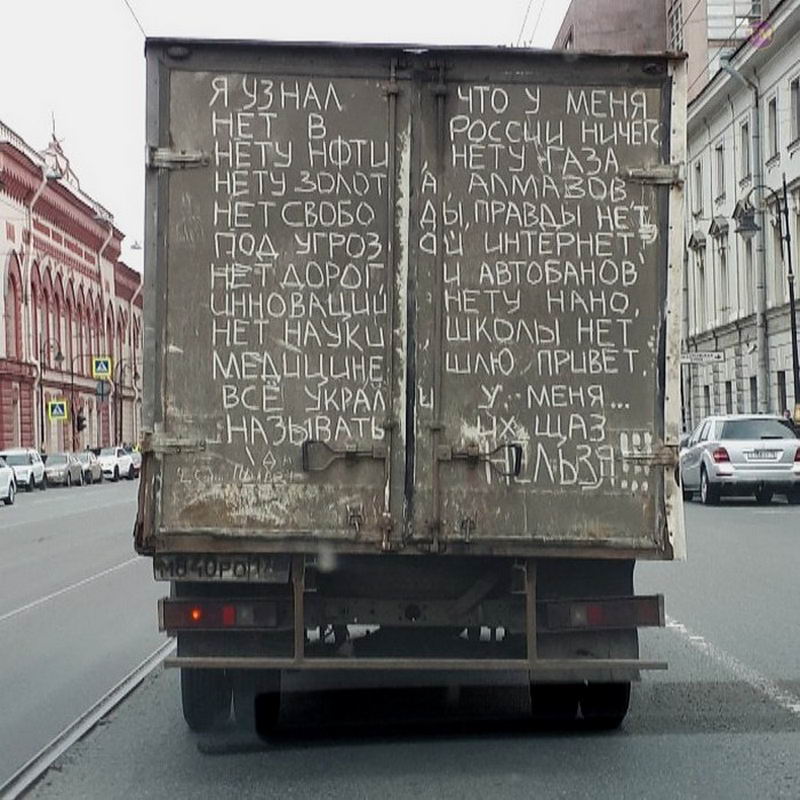 Я УЗНАЛ ЧТО У МЕНЯ
НЕТ В РОССИИ НИЧЕГО
НЕТУ НФТИ, НЕТУ ГАЗА
НЕТУ ЗОЛОТА АЛМАЗОВ
НЕТ СВОБОДЫ, ПРАВДЫ НЕТ
ПОД УГРОЗОЙ ИНТЕРНЕТ
НЕТ ДОРОГ, И АВТОБАНОВ
ИННОВАЦИЙ НЕТУ НАНО,
НЕТ НАУКИ ШКОЛЫ НЕТ
МЕДИЦИНЕ ШЛЮ ПРИВЕТ.
ВСЁ УКРАЛИ У МЕНЯ...
НАЗЫВАТЬ ИХ ЩАЗ
НЕЛЬЗЯ!!!